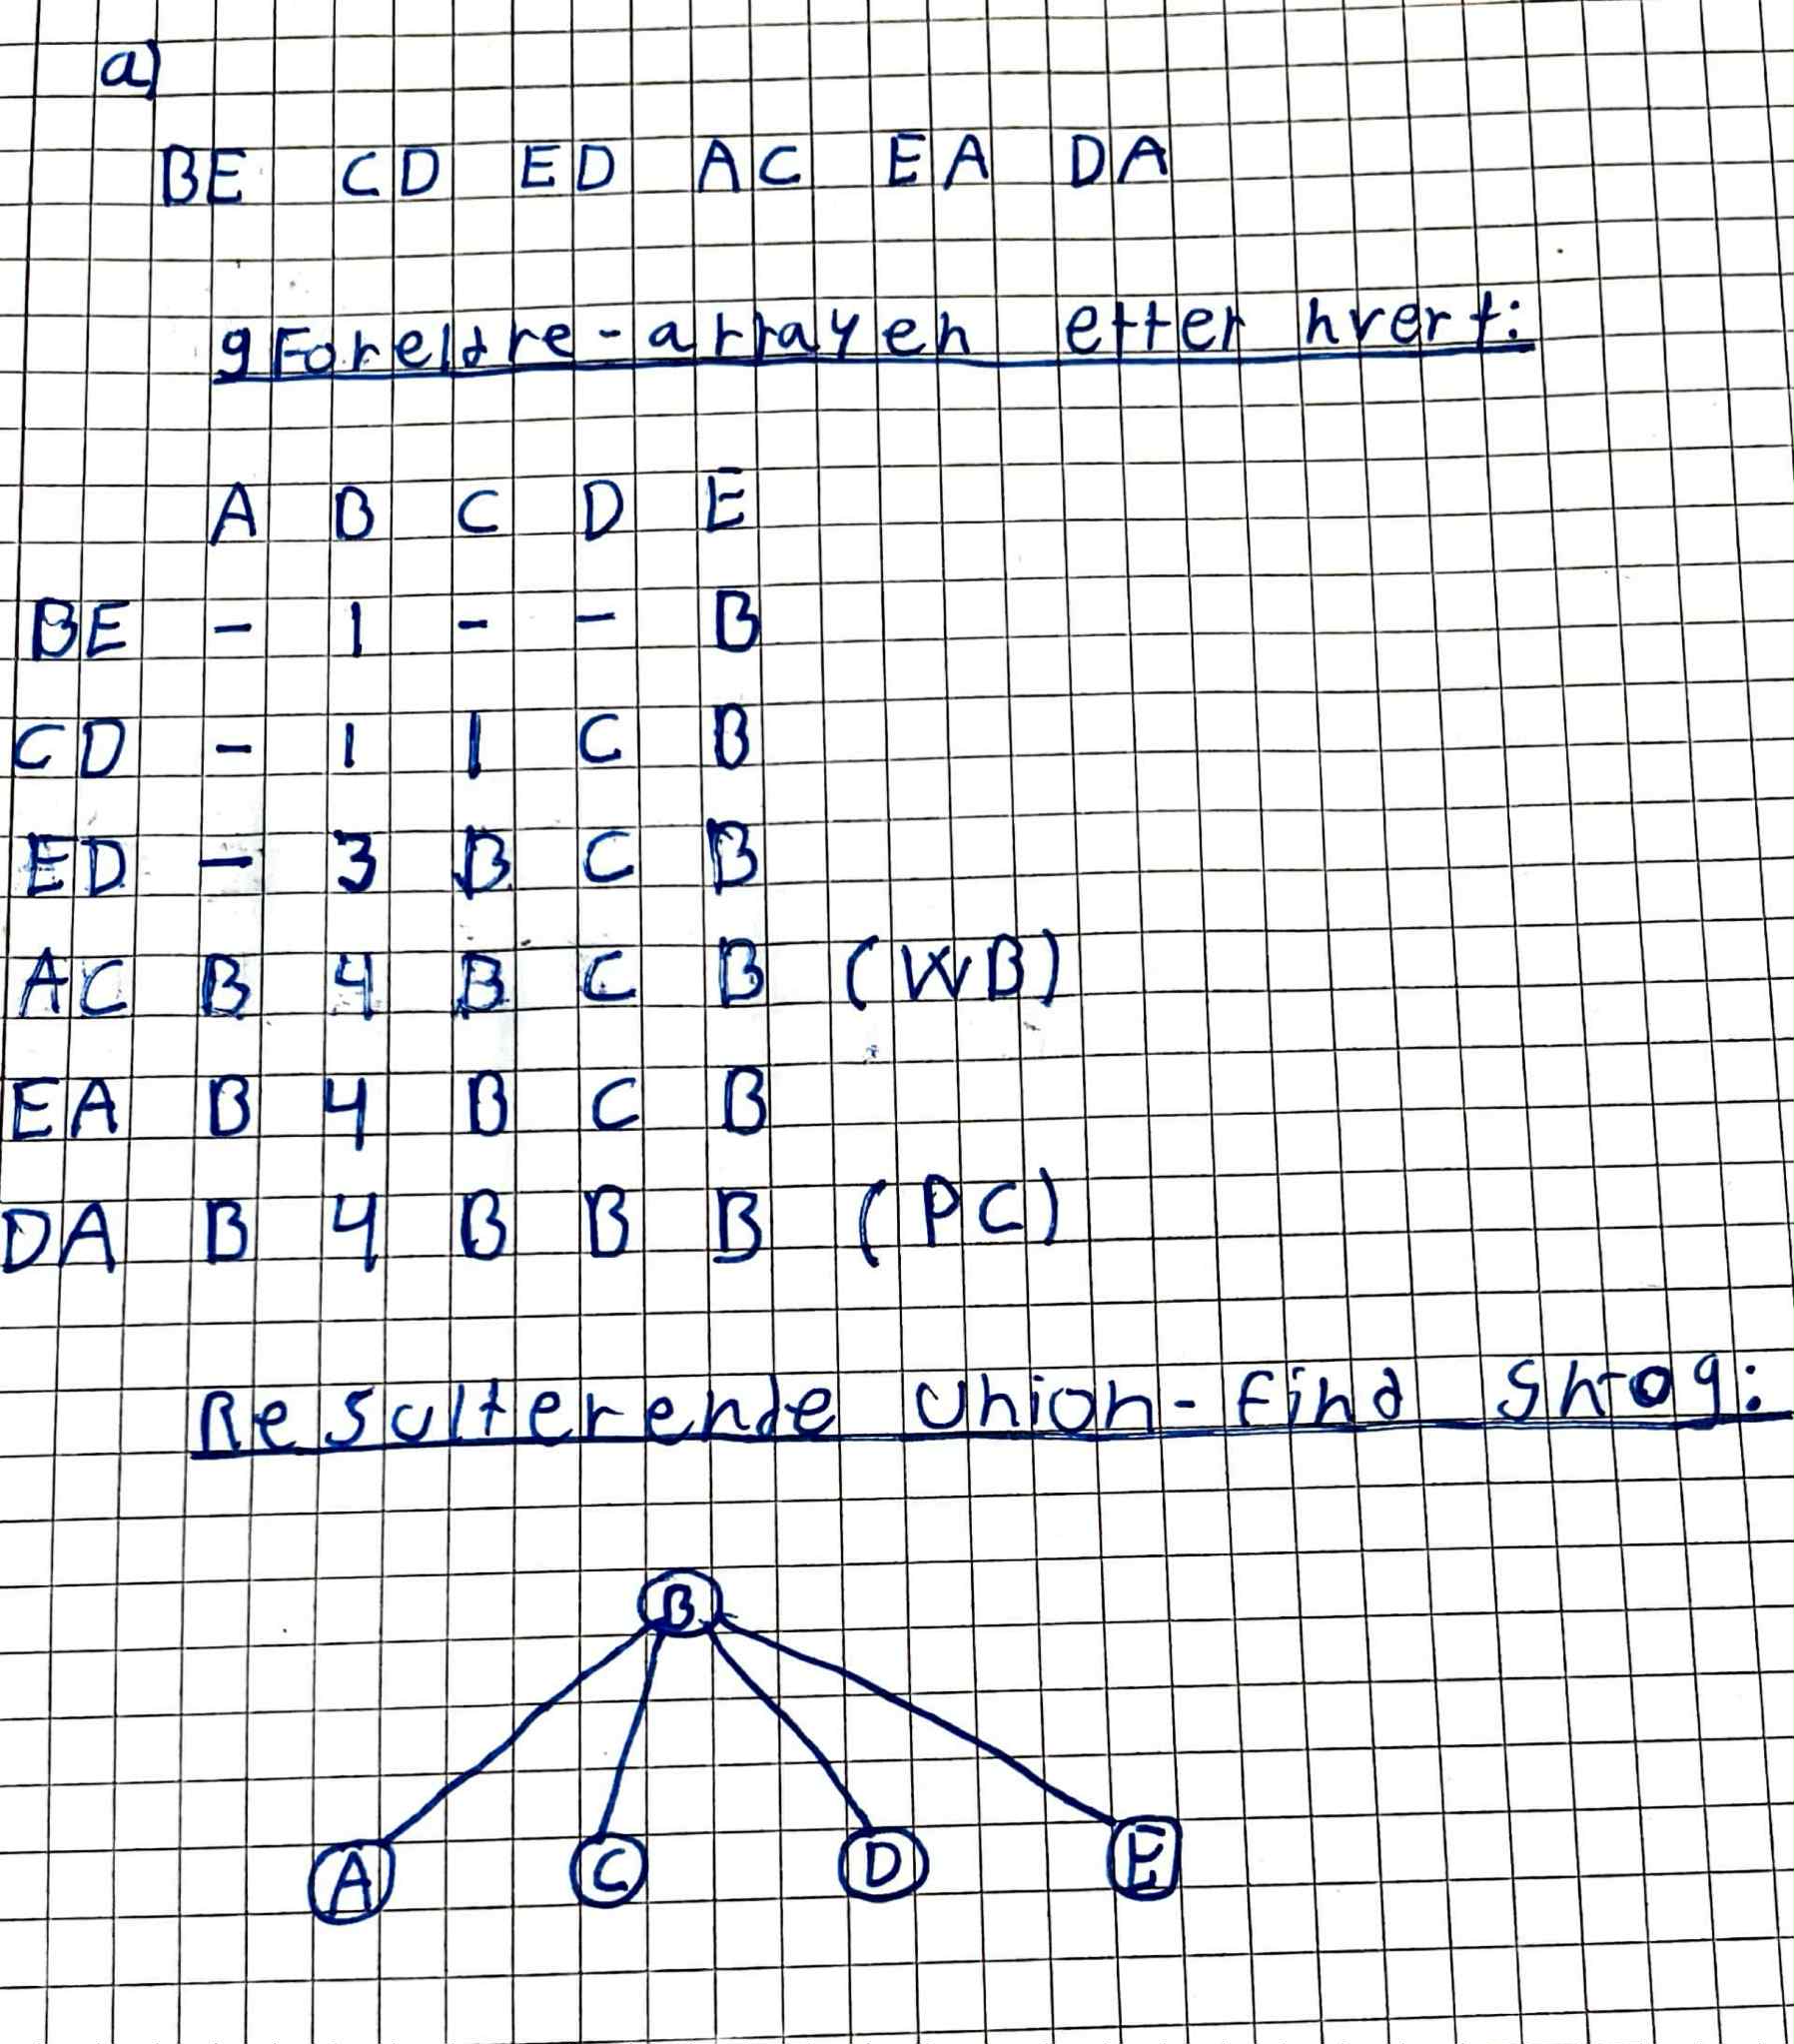 a)
BE CD ED AC EA DA
gForeldre-arrayen etter hvert:
A B C D E
BE - 1 - - B
CD - 1 1 C B
ED - 3 B C B
AC B 4 B C B (WB)
EA B 4 B C B
DA B 4 B B B (PC)
Resulterende union-find skog:
B
A C D E